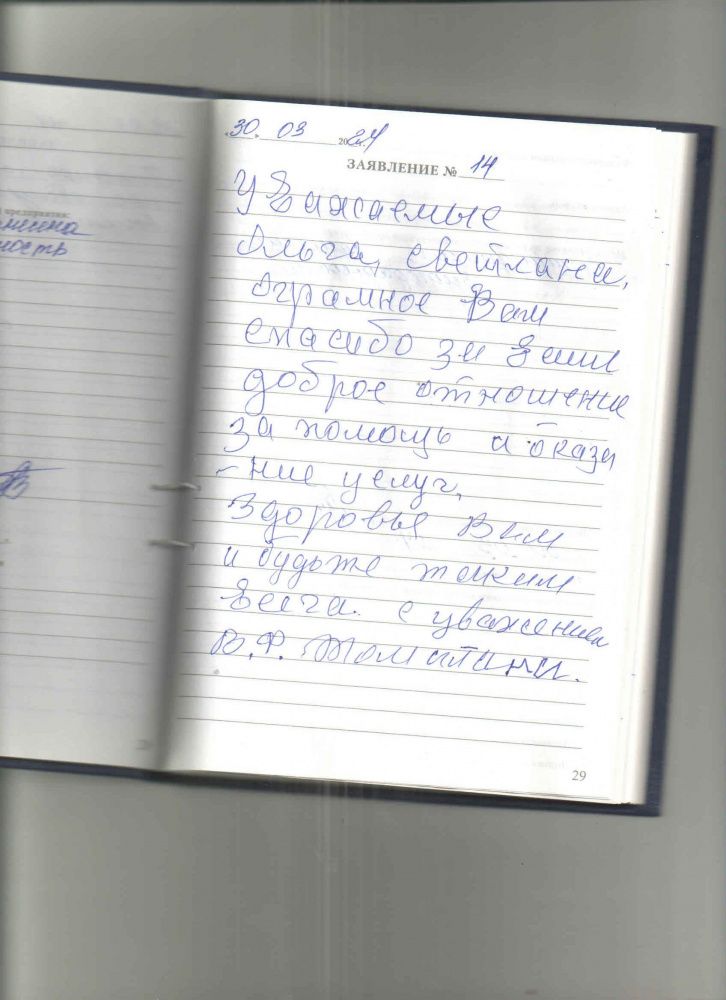 предприятия:
ность
"30" 03 2024
ЗАЯВЛЕНИЕ № 14
Уважаемые
Ольга, Светлана,
Огромное Вам
спасибо за ваше
доброе отношение
за помощь и оказа
-ние услуг,
Здоровье Вам
и будьте таким
всега. с уважением
В.Ф.
29